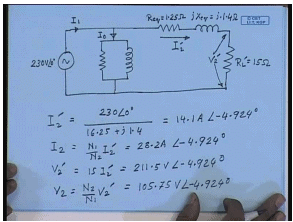 I₁
Req=1.25Ω jXeq=j1.4Ω
© CET
I.I.T. KGP
I₀
I₂'
230V∠0°
V₂'
RL'=15Ω
I₂' = 230∠0° / 16.25 + j1.4 = 14.1A ∠-4.924°
I₂ = N₁/N₂ I₂' = 28.2A ∠-4.924°
V₂' = 15 I₂' = 211.5 V ∠-4.924°
V₂ = N₂/N₁ V₂' = 105.75 V ∠-4.924°